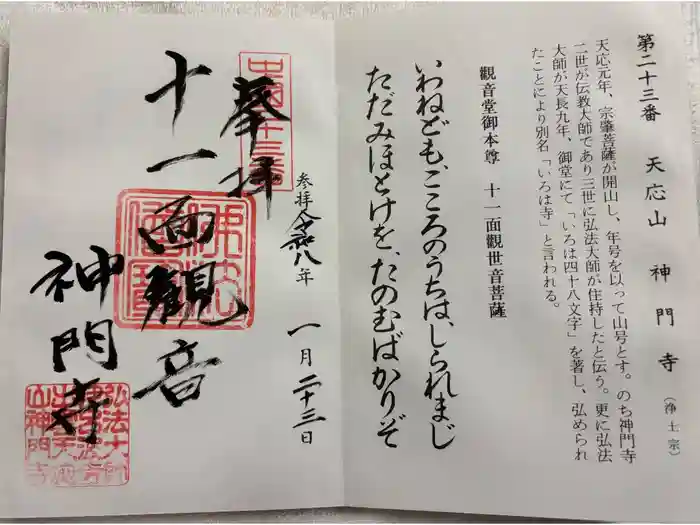 第二十三番　天応山　神門寺（浄土宗）
天応元年、宗肇菩薩が開山し、年号を以って山号とす。のち神門寺
二世が伝教大師であり三世に弘法大師が住持したと伝う。更に弘法
大師が天長九年、御堂にて「いろは四十八文字」を著し、弘められ
たことにより別名「いろは寺」と言われる。
觀音堂御本尊　十一面觀世音菩薩
いわねども、こころのうちは、しられまじ
ただみほとけを、たのむばかりぞ
参拝令和八年
一月二十三日
奉拝
十一面觀音
神門寺
中国二十三番